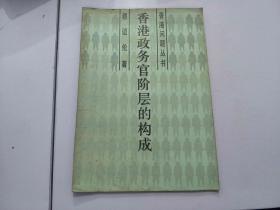 香港问题丛书
香港政务官阶层的构成